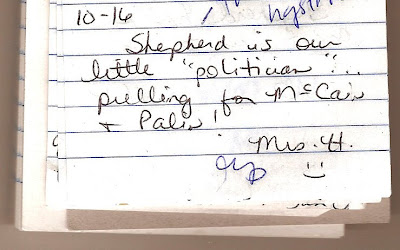 10-16
Shepherd is our
little "politician"...
pulling for McCain
& Palin!
Mrs. H.